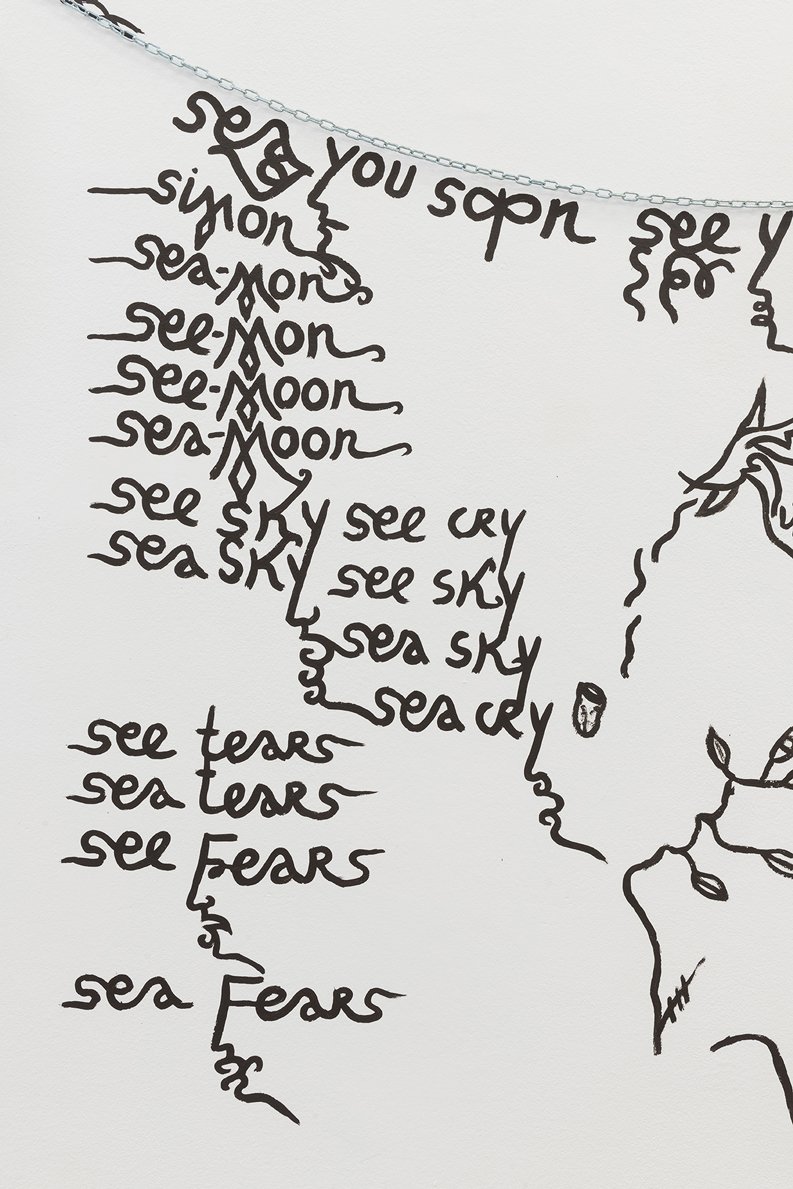 sea you soon see y
simon
sea-Mon
see-Mon
see-Moon
sea-Moon
see sky
sea sky
see cry
see sky
sea sky
sea cry
see tears
sea tears
see Fears
sea Fears